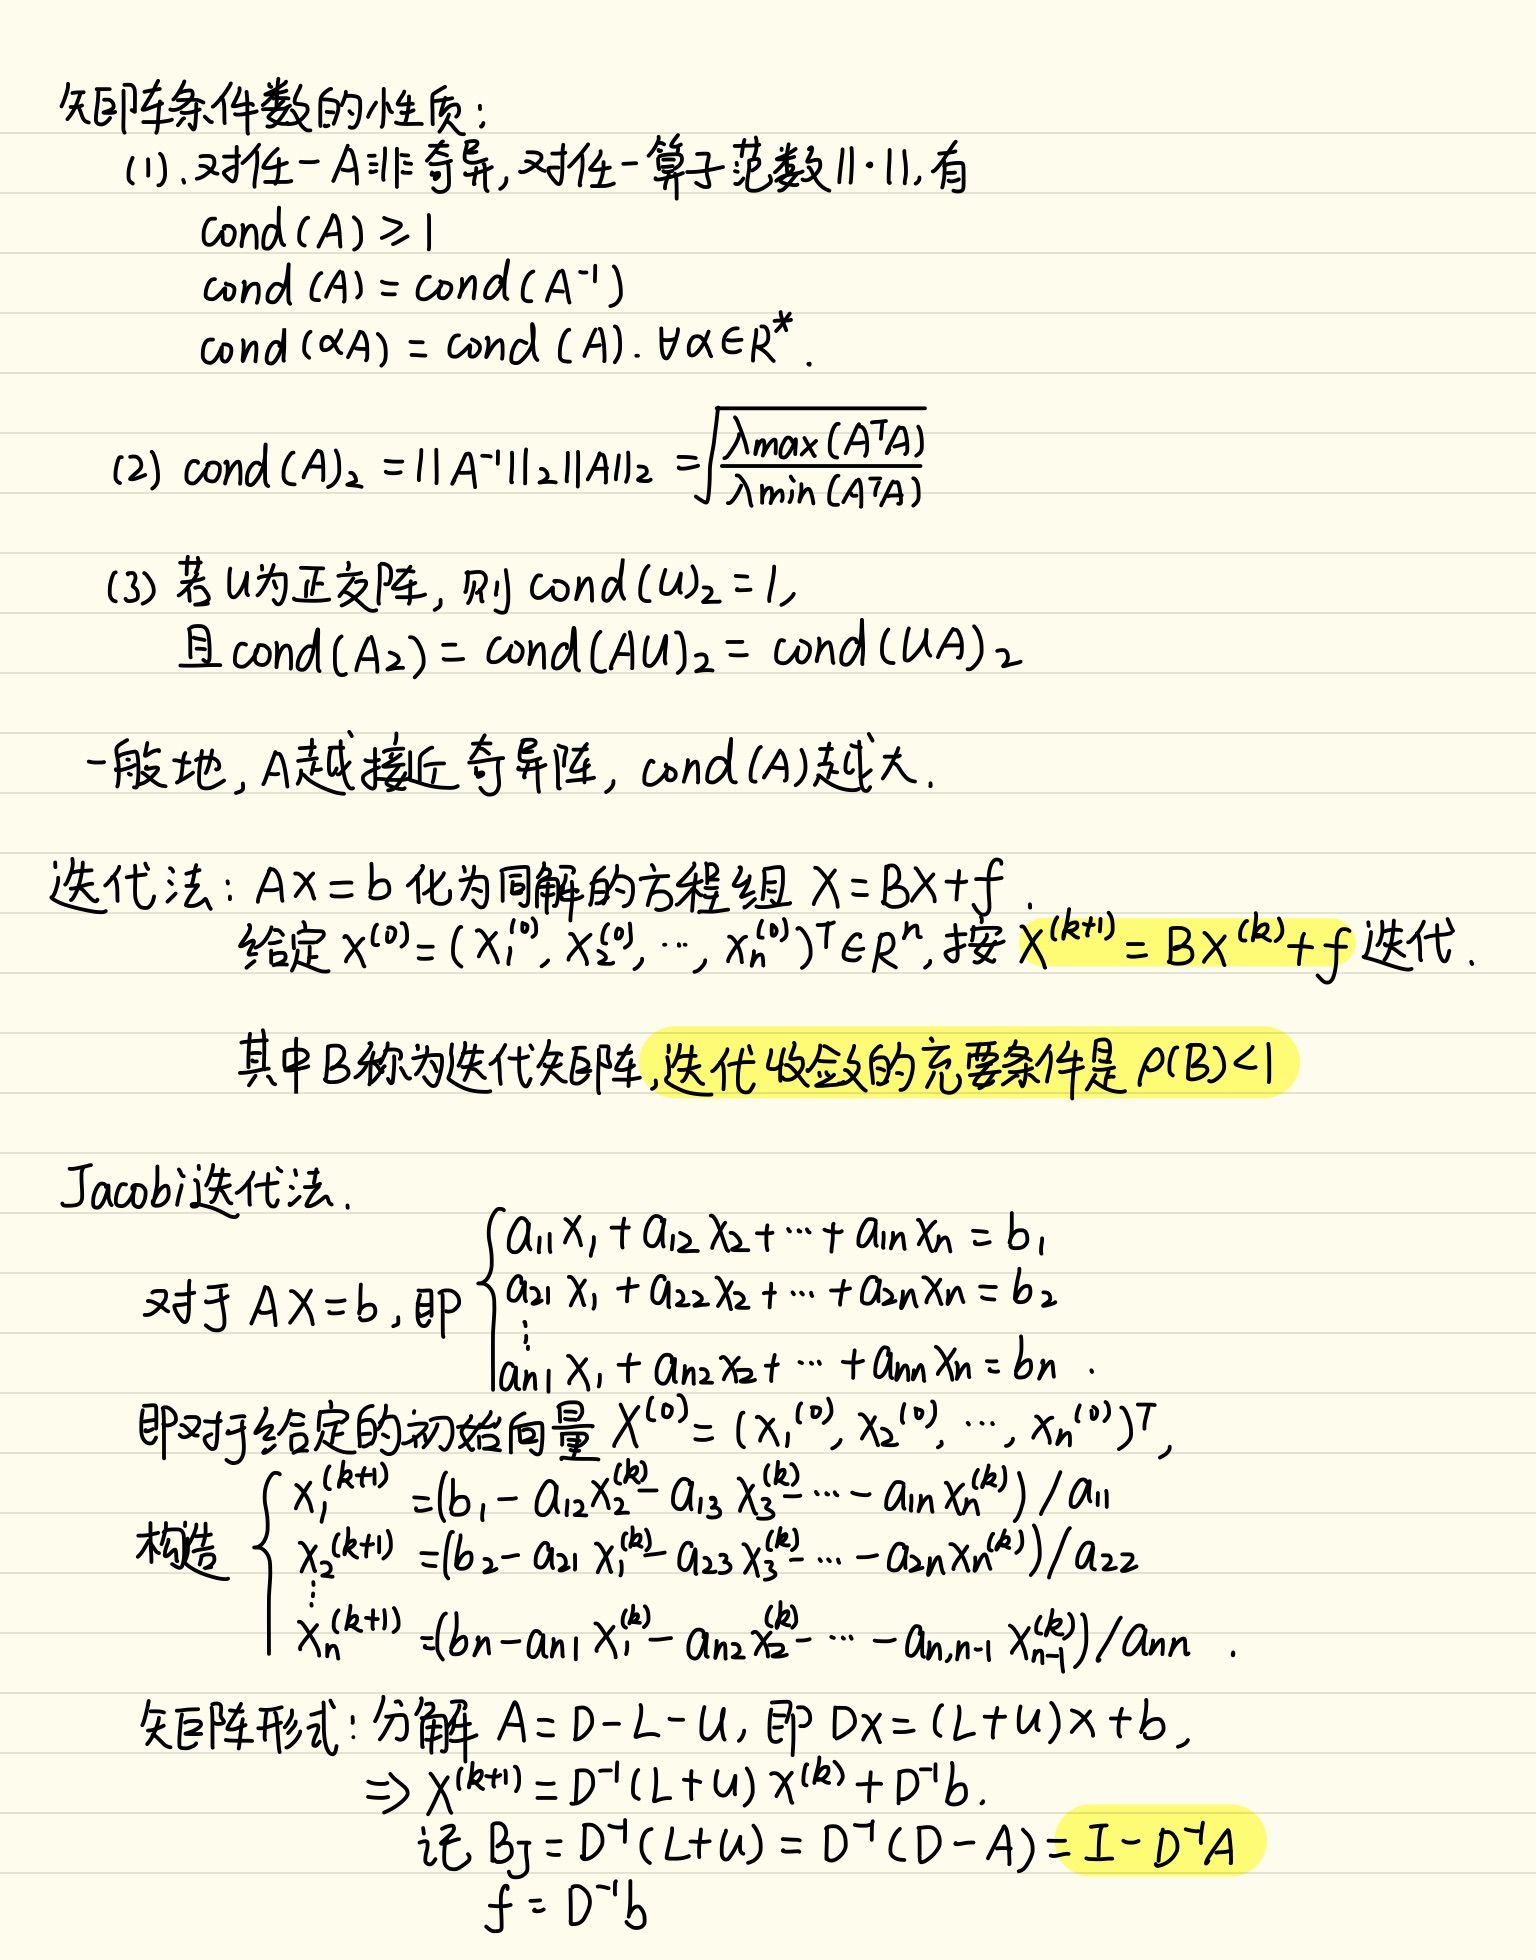 矩阵条件数的性质:
(1).对任一A非奇异,对任一算子范数||·||,有
cond(A)≥1
cond(A)=cond(A⁻¹)
cond(αA)=cond(A).∀α∈R*.
(2) cond(A)₂=||A⁻¹||₂||A||₂=√(λmax(AᵀA)/λmin(AᵀA))
(3) 若U为正交阵,则cond(U)₂=1,
且cond(A₂)=cond(AU)₂=cond(UA)₂
一般地,A越接近奇异阵,cond(A)越大.
迭代法:Ax=b化为同解的方程组 X=BX+f.
给定x⁽⁰⁾=(x₁⁽⁰⁾,x₂⁽⁰⁾,…,xₙ⁽⁰⁾)ᵀ∈Rⁿ,按X⁽ᵏ⁺¹⁾=BX⁽ᵏ⁾+f迭代.
其中B称为迭代矩阵,迭代收敛的充要条件是ρ(B)<1
Jacobi迭代法.
a₁₁x₁+a₁₂x₂+…+a₁ₙxₙ=b₁
对于AX=b,即 { a₂₁x₁+a₂₂x₂+…+a₂ₙxₙ=b₂
⋮
aₙ₁x₁+aₙ₂x₂+…+aₙₙxₙ=bₙ.
即对于给定的初始向量X⁽⁰⁾=(x₁⁽⁰⁾,x₂⁽⁰⁾,…,xₙ⁽⁰⁾)ᵀ,
x₁⁽ᵏ⁺¹⁾=(b₁-a₁₂x₂⁽ᵏ⁾-a₁₃x₃⁽ᵏ⁾-…-a₁ₙxₙ⁽ᵏ⁾)/a₁₁
构造 { x₂⁽ᵏ⁺¹⁾=(b₂-a₂₁x₁⁽ᵏ⁾-a₂₃x₃⁽ᵏ⁾-…-a₂ₙxₙ⁽ᵏ⁾)/a₂₂
⋮
xₙ⁽ᵏ⁺¹⁾=(bₙ-aₙ₁x₁⁽ᵏ⁾-aₙ₂x₂⁽ᵏ⁾-…-aₙ,ₙ₋₁xₙ₋₁⁽ᵏ⁾)/aₙₙ.
矩阵形式:分解A=D-L-U,即Dx=(L+U)x+b,
⇒X⁽ᵏ⁺¹⁾=D⁻¹(L+U)X⁽ᵏ⁾+D⁻¹b.
记 B_J=D⁻¹(L+U)=D⁻¹(D-A)=I-D⁻¹A
f=D⁻¹b